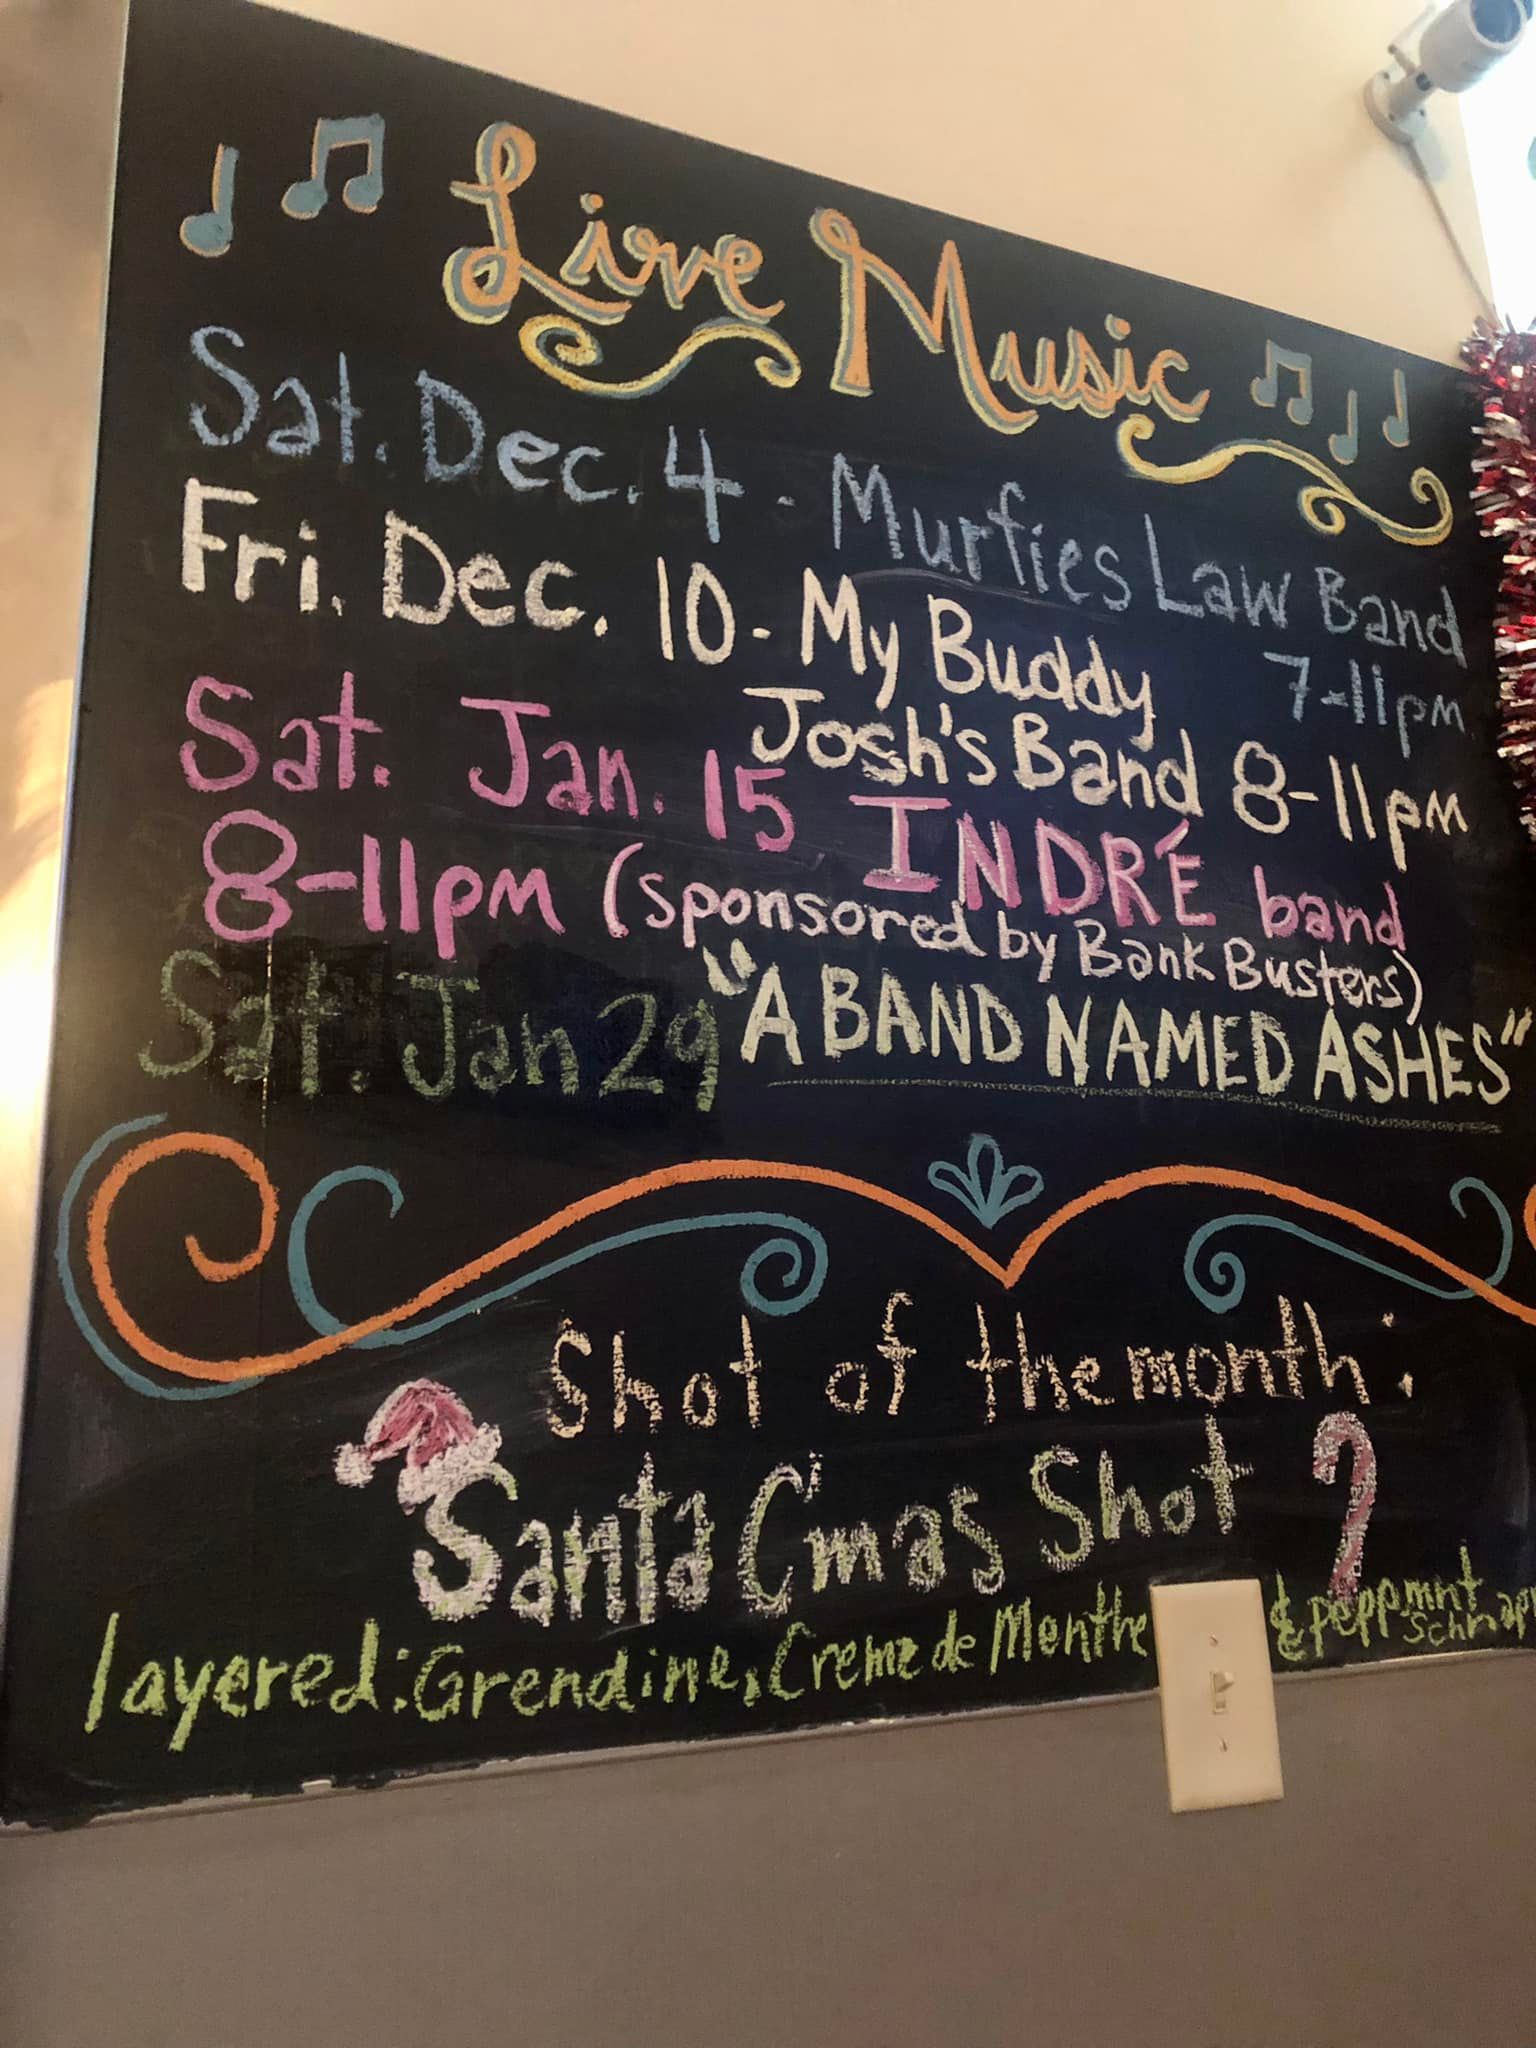 Live Music
Sat. Dec. 4 - Murfies Law Band
7-11pm
Fri. Dec. 10 - My Buddy
Josh's Band 8-11pm
Sat. Jan. 15 INDRÉ band
8-11pm (sponsored by Bank Busters)
Sat. Jan 29 "A BAND NAMED ASHES"
Shot of the month:
Santa C'mas Shot
layered: Grendine, Creme de Menthe & pepp.mnt
Schnap